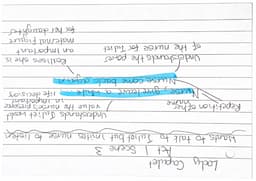 Lady Capulet
Act 1 Scene 3
Wants to talk to Juliet but invites nurse to listen
Repetition of the
nurse
Understands Juliet would
value the nurse's presence
in important
life decision
Nurse give leave a while
Nurse come back again
Understands the power
of the nurse for Juliet
she is
an important
maternal figure
for her daughter